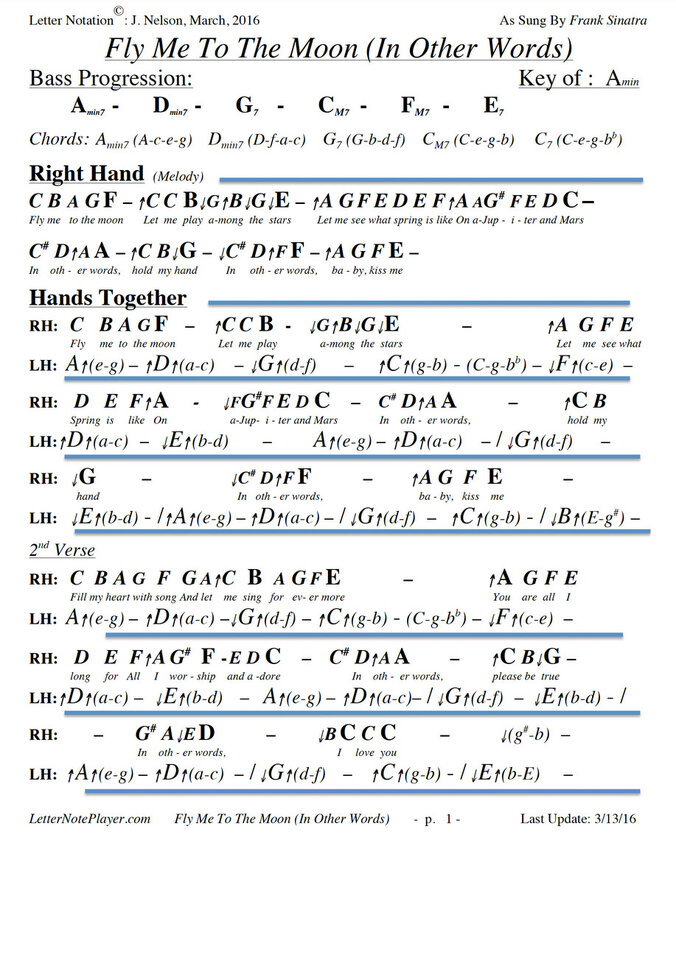 Letter Notation©: J. Nelson, March, 2016 As Sung By Frank Sinatra
Fly Me To The Moon (In Other Words)
Bass Progression: Key of : Amin
Amin7 - Dmin7 - G7 - CM7 - FM7 - E7
Chords: Amin7 (A-c-e-g) Dmin7 (D-f-a-c) G7 (G-b-d-f) CM7 (C-e-g-b) C7 (C-e-g-bb)
Right Hand (Melody)
C B A G F – ↑C C B↓G↑B↓G↓E – ↑A G F E D E F↑A AG# F E D C –
Fly me to the moon Let me play a-mong the stars Let me see what spring is like On a-Jup - i - ter and Mars
C# D↑A A – ↑C B↓G – ↓C# D↑F F – ↑A G F E –
In oth - er words, hold my hand In oth - er words, ba - by, kiss me
Hands Together
RH: C B A G F – ↑C C B - ↓G↑B↓G↓E – ↑A G F E
Fly me to the moon Let me play a-mong the stars Let me see what
LH: A↑(e-g) – ↑D↑(a-c) – ↓G↑(d-f) – ↑C↑(g-b) - (C-g-bb) – ↓F↑(c-e) –
RH: D E F↑A - ↓FG#F E D C – C# D↑A A – ↑C B
Spring is like On a-Jup- i - ter and Mars In oth - er words, hold my
LH:↑D↑(a-c) – ↓E↑(b-d) – A↑(e-g) – ↑D↑(a-c) – / ↓G↑(d-f) –
RH: ↓G – ↓C# D↑F F – ↑A G F E –
hand In oth - er words, ba - by, kiss me
LH: ↓E↑(b-d) - /↑A↑(e-g) – ↑D↑(a-c) – / ↓G↑(d-f) – ↑C↑(g-b) - / ↓B↑(E-g#) –
2nd Verse
RH: C B A G F G A↑C B A G F E – ↑A G F E
Fill my heart with song And let me sing for ev- er more You are all I
LH: A↑(e-g) – ↑D↑(a-c) –↓G↑(d-f) – ↑C↑(g-b) - (C-g-bb) – ↓F↑(c-e) –
RH: D E F↑A G# F -E D C – C# D↑A A – ↑C B↓G –
long for All I wor - ship and a -dore In oth - er words, please be true
LH:↑D↑(a-c) – ↓E↑(b-d) – A↑(e-g) – ↑D↑(a-c)– / ↓G↑(d-f) – ↓E↑(b-d) - /
RH: – G# A↓E D – ↓B C C C – ↓(g#-b) –
In oth - er words, I love you
LH: ↑A↑(e-g) – ↑D↑(a-c) – / ↓G↑(d-f) – ↑C↑(g-b) - / ↓E↑(b-E) –
LetterNotePlayer.com Fly Me To The Moon (In Other Words) - p. 1 - Last Update: 3/13/16